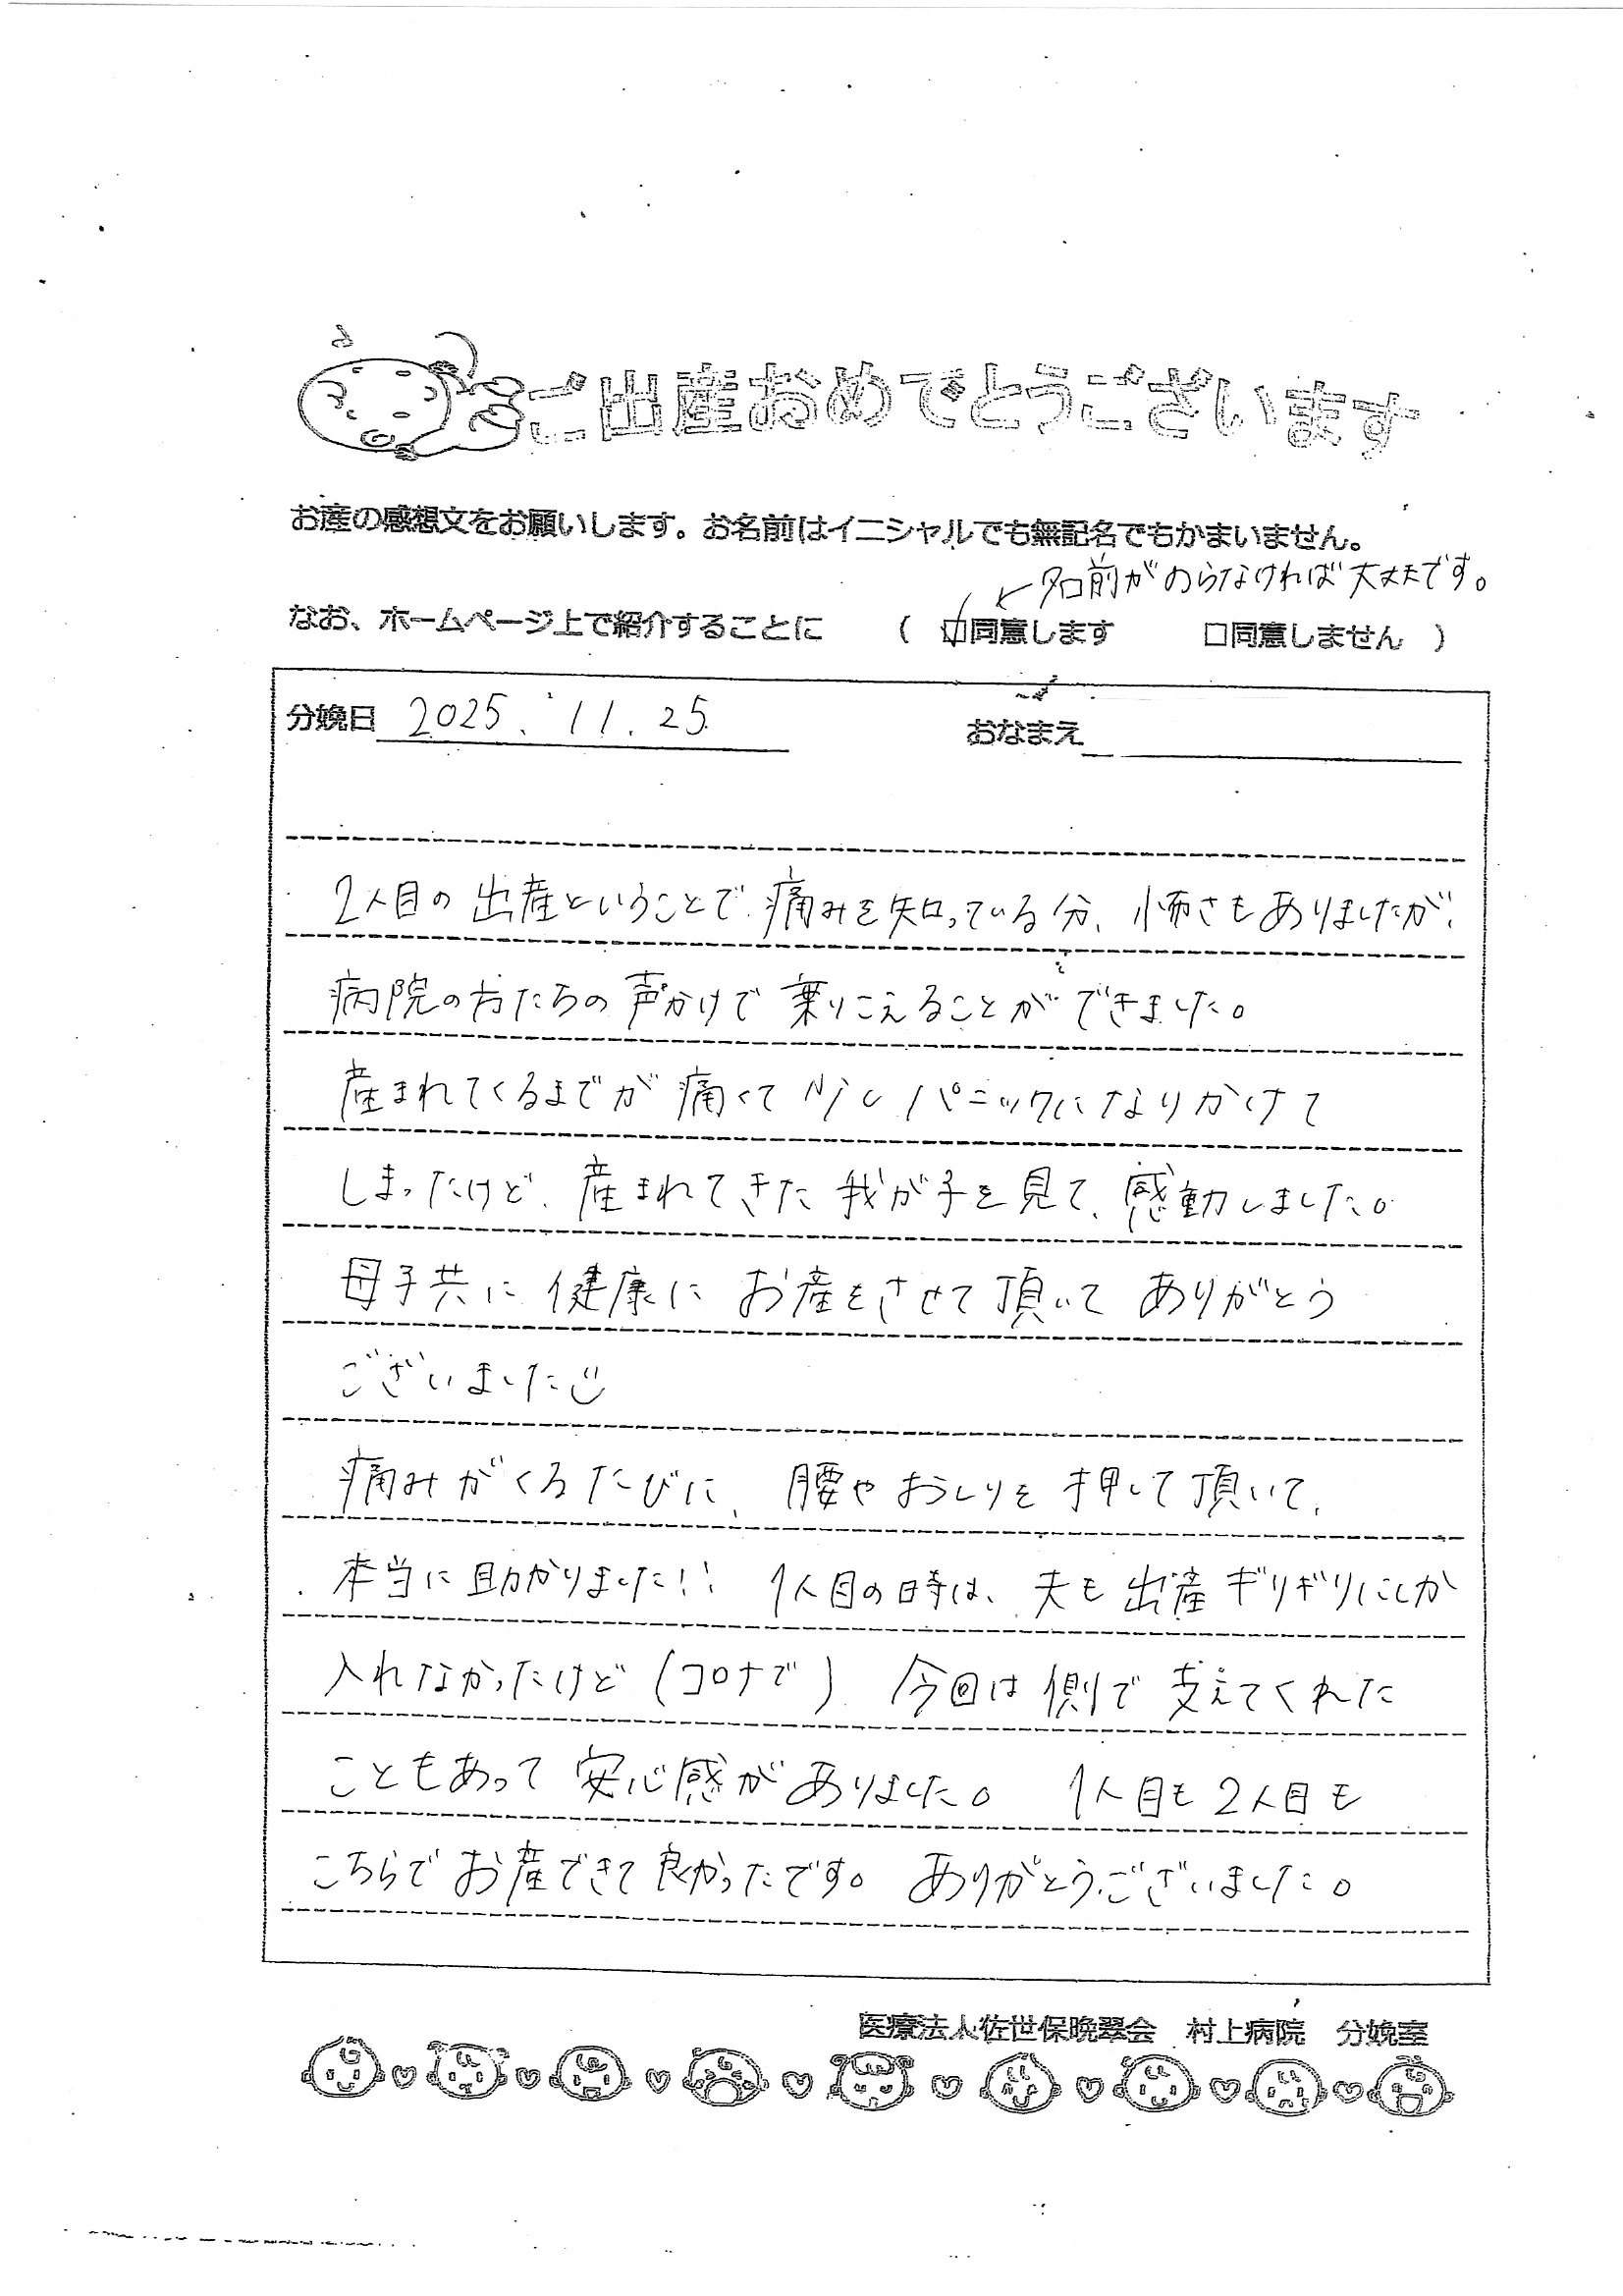 ご出産おめでとうございます
お産の感想文をお願いします。お名前はイニシャルでも無記名でもかまいません。
← 名前がのらなければ大丈夫です。
なお、ホームページ上で紹介することに ( ☑同意します □同意しません )
分娩日 2025. 11. 25 おなまえ
2人目の出産ということで、痛みを知っている分、怖さもありましたが、
病院の方たちの声かけで乗りこえることができました。
産まれてくるまでが痛くて少しパニックになりかけて
しまったけど、産まれてきた我が子を見て、感動しました。
母子共に健康にお産をさせて頂いてありがとう
ございました
痛みがくるたびに、腰やおしりを押して頂いて、
本当に助かりました!! 1人目の時は、夫も出産ギリギリにしか
入れなかったけど(コロナで)、今回は側で支えてくれた
こともあって安心感がありました。 1人目も2人目も
こちらでお産できて良かったです。ありがとうございました。
医療法人佐世保晩翠会 村上病院 分娩室